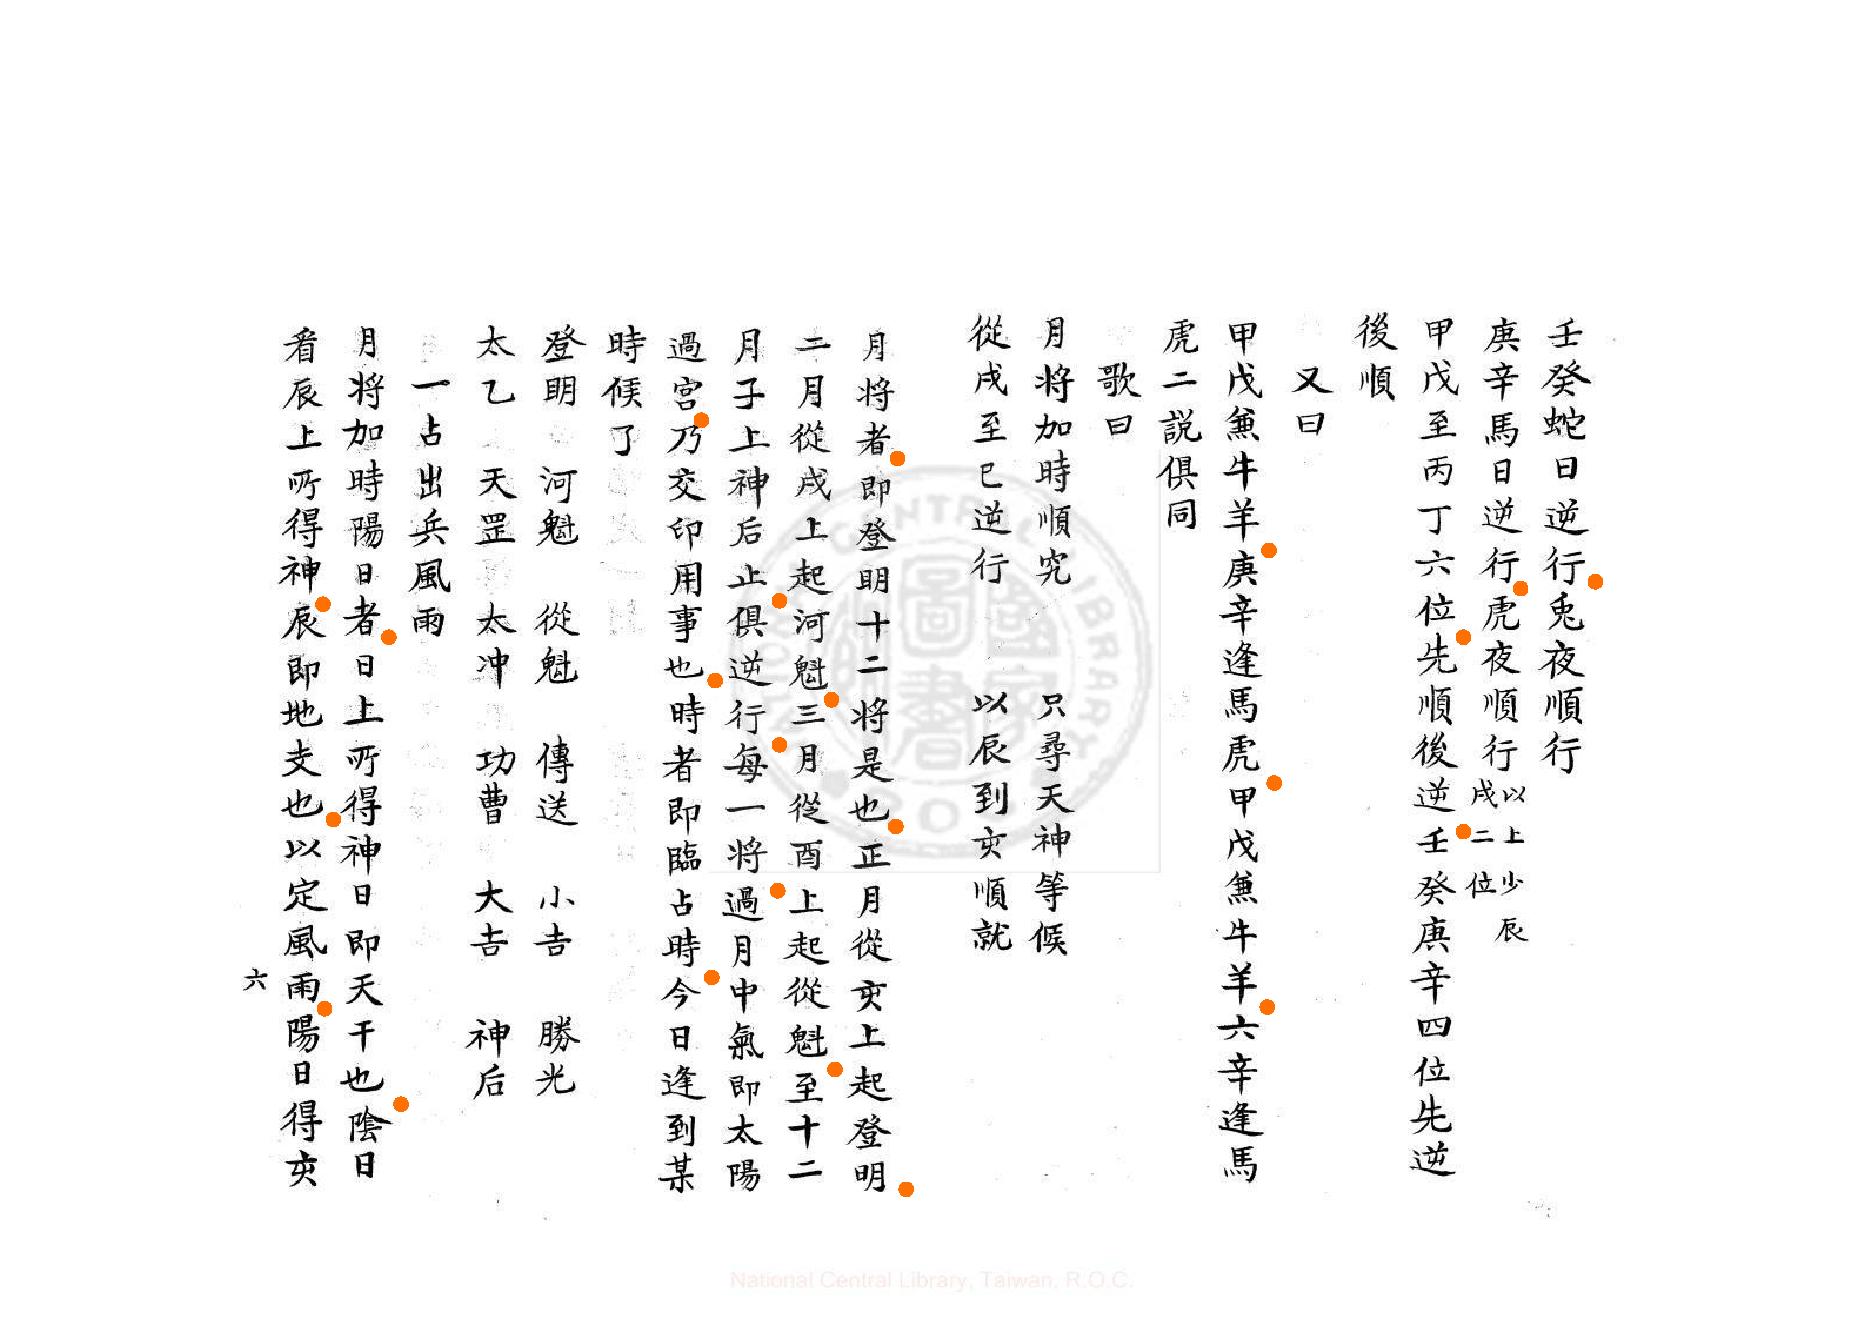 壬癸蛇日逆行兎夜順行
庚辛馬日逆行虎夜順行以上少辰戌二位
甲戊至丙丁六位先順後逆壬癸庚辛四位先逆
後順
又曰
甲戊兼牛羊庚辛逢馬虎甲戊兼牛羊六辛逢馬
虎二説俱同
歌曰
月将加時順究 只尋天神等候
從戌至巳逆行 以辰到亥順就
月将者即登明十二将是也正月從亥上起登明
二月從戌上起河魁三月從酉上起從魁至十二
月子上神后止俱逆行每一将過月中氣即太陽
過宮乃交印用事也時者即臨占時今日逢到某
時候了
登明 河魁 從魁 傳送 小吉 勝光
太乙 天罡 太冲 功曹 大吉 神后
一占出兵風雨
月将加時陽日者日上所得神日即天干也陰日
看辰上所得神辰即地支也以定風雨陽日得亥
六
National Central Library, Taiwan, R.O.C.